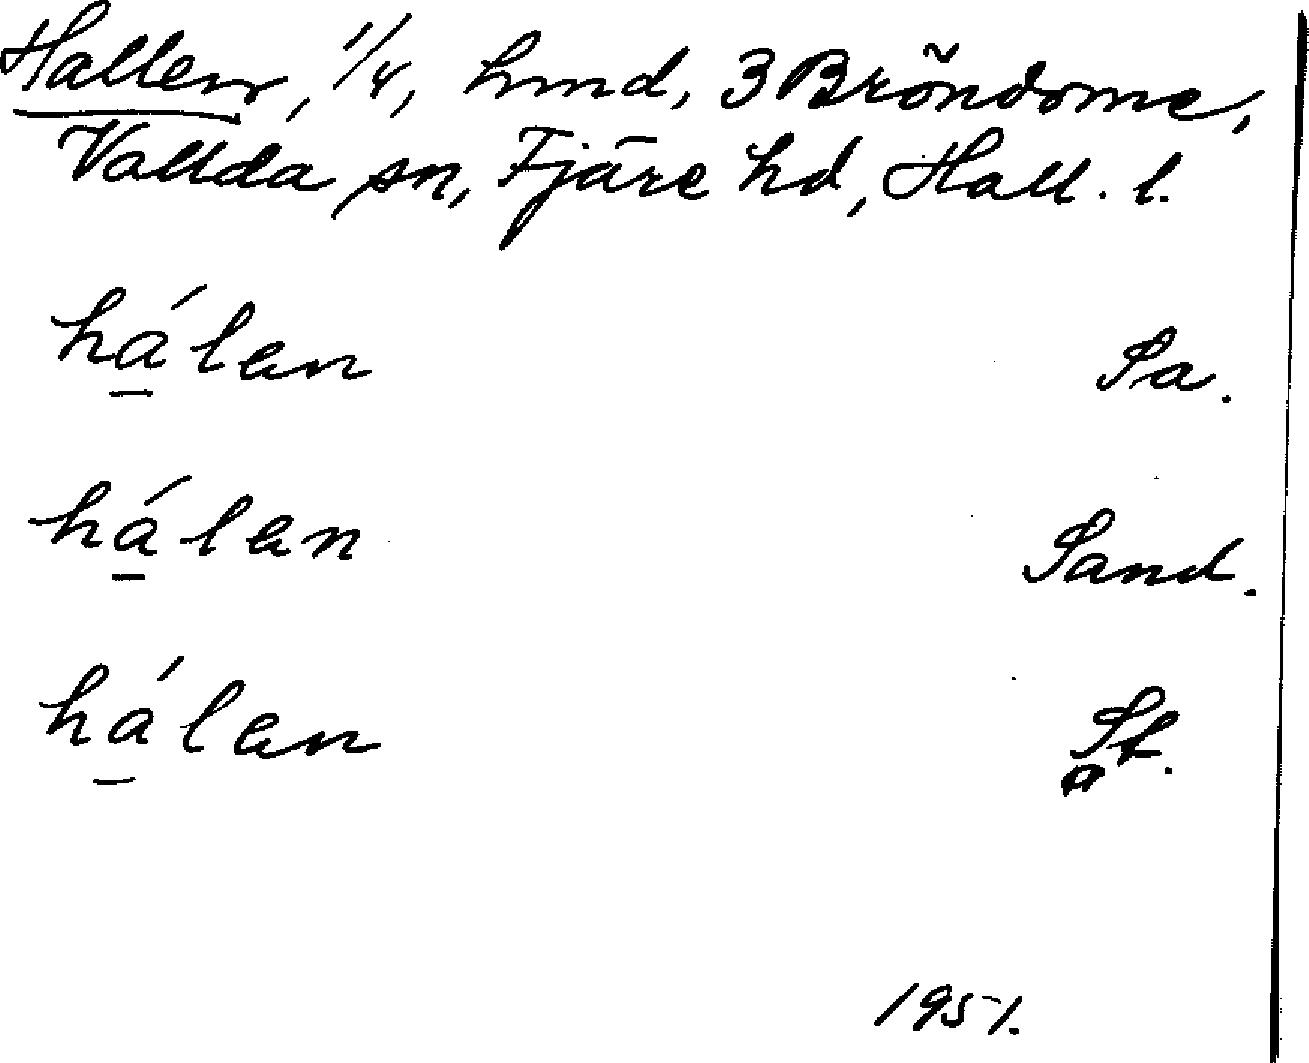 Hallen, 1/4, hmd, 3 Bröndome,
Vallda sn, Fjäre hd, Hall. l.
hálan Sa.
hálan Sand.
hálan St.
1951.